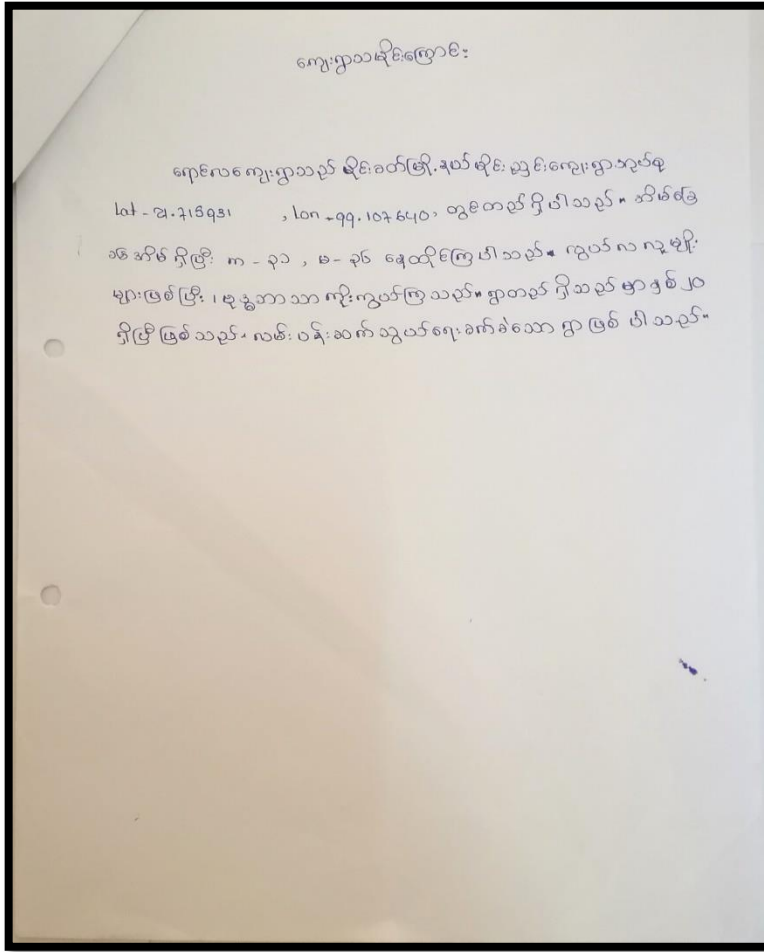 ကျေးရွာသမိုင်းကြောင်း
ရောင်လကျေးရွာသည် မိုင်းခတ်မြို့နယ် မိုင်းညှင်းကျေးရွာအုပ်စု
Lat - 21.715931 , Lon - 99.107640, တွင်တည်ရှိပါသည်။ အိမ်ခြေ
အိမ် ရှိပြီး က - ၃၁ , မ - ၃၆ နေထိုင်ကြပါသည်။ လွယ်လ လူမျိုး
များဖြစ်ပြီး ၊ ဗုဒ္ဓဘာသာ ကိုးကွယ်ကြသည်။ ရွာတည်ရှိသည်မှာ နှစ် ၂၀
ရှိပြီဖြစ်သည်။ လမ်းပန်းဆက်သွယ်ရေးခက်ခဲသော ရွာဖြစ်ပါသည်။